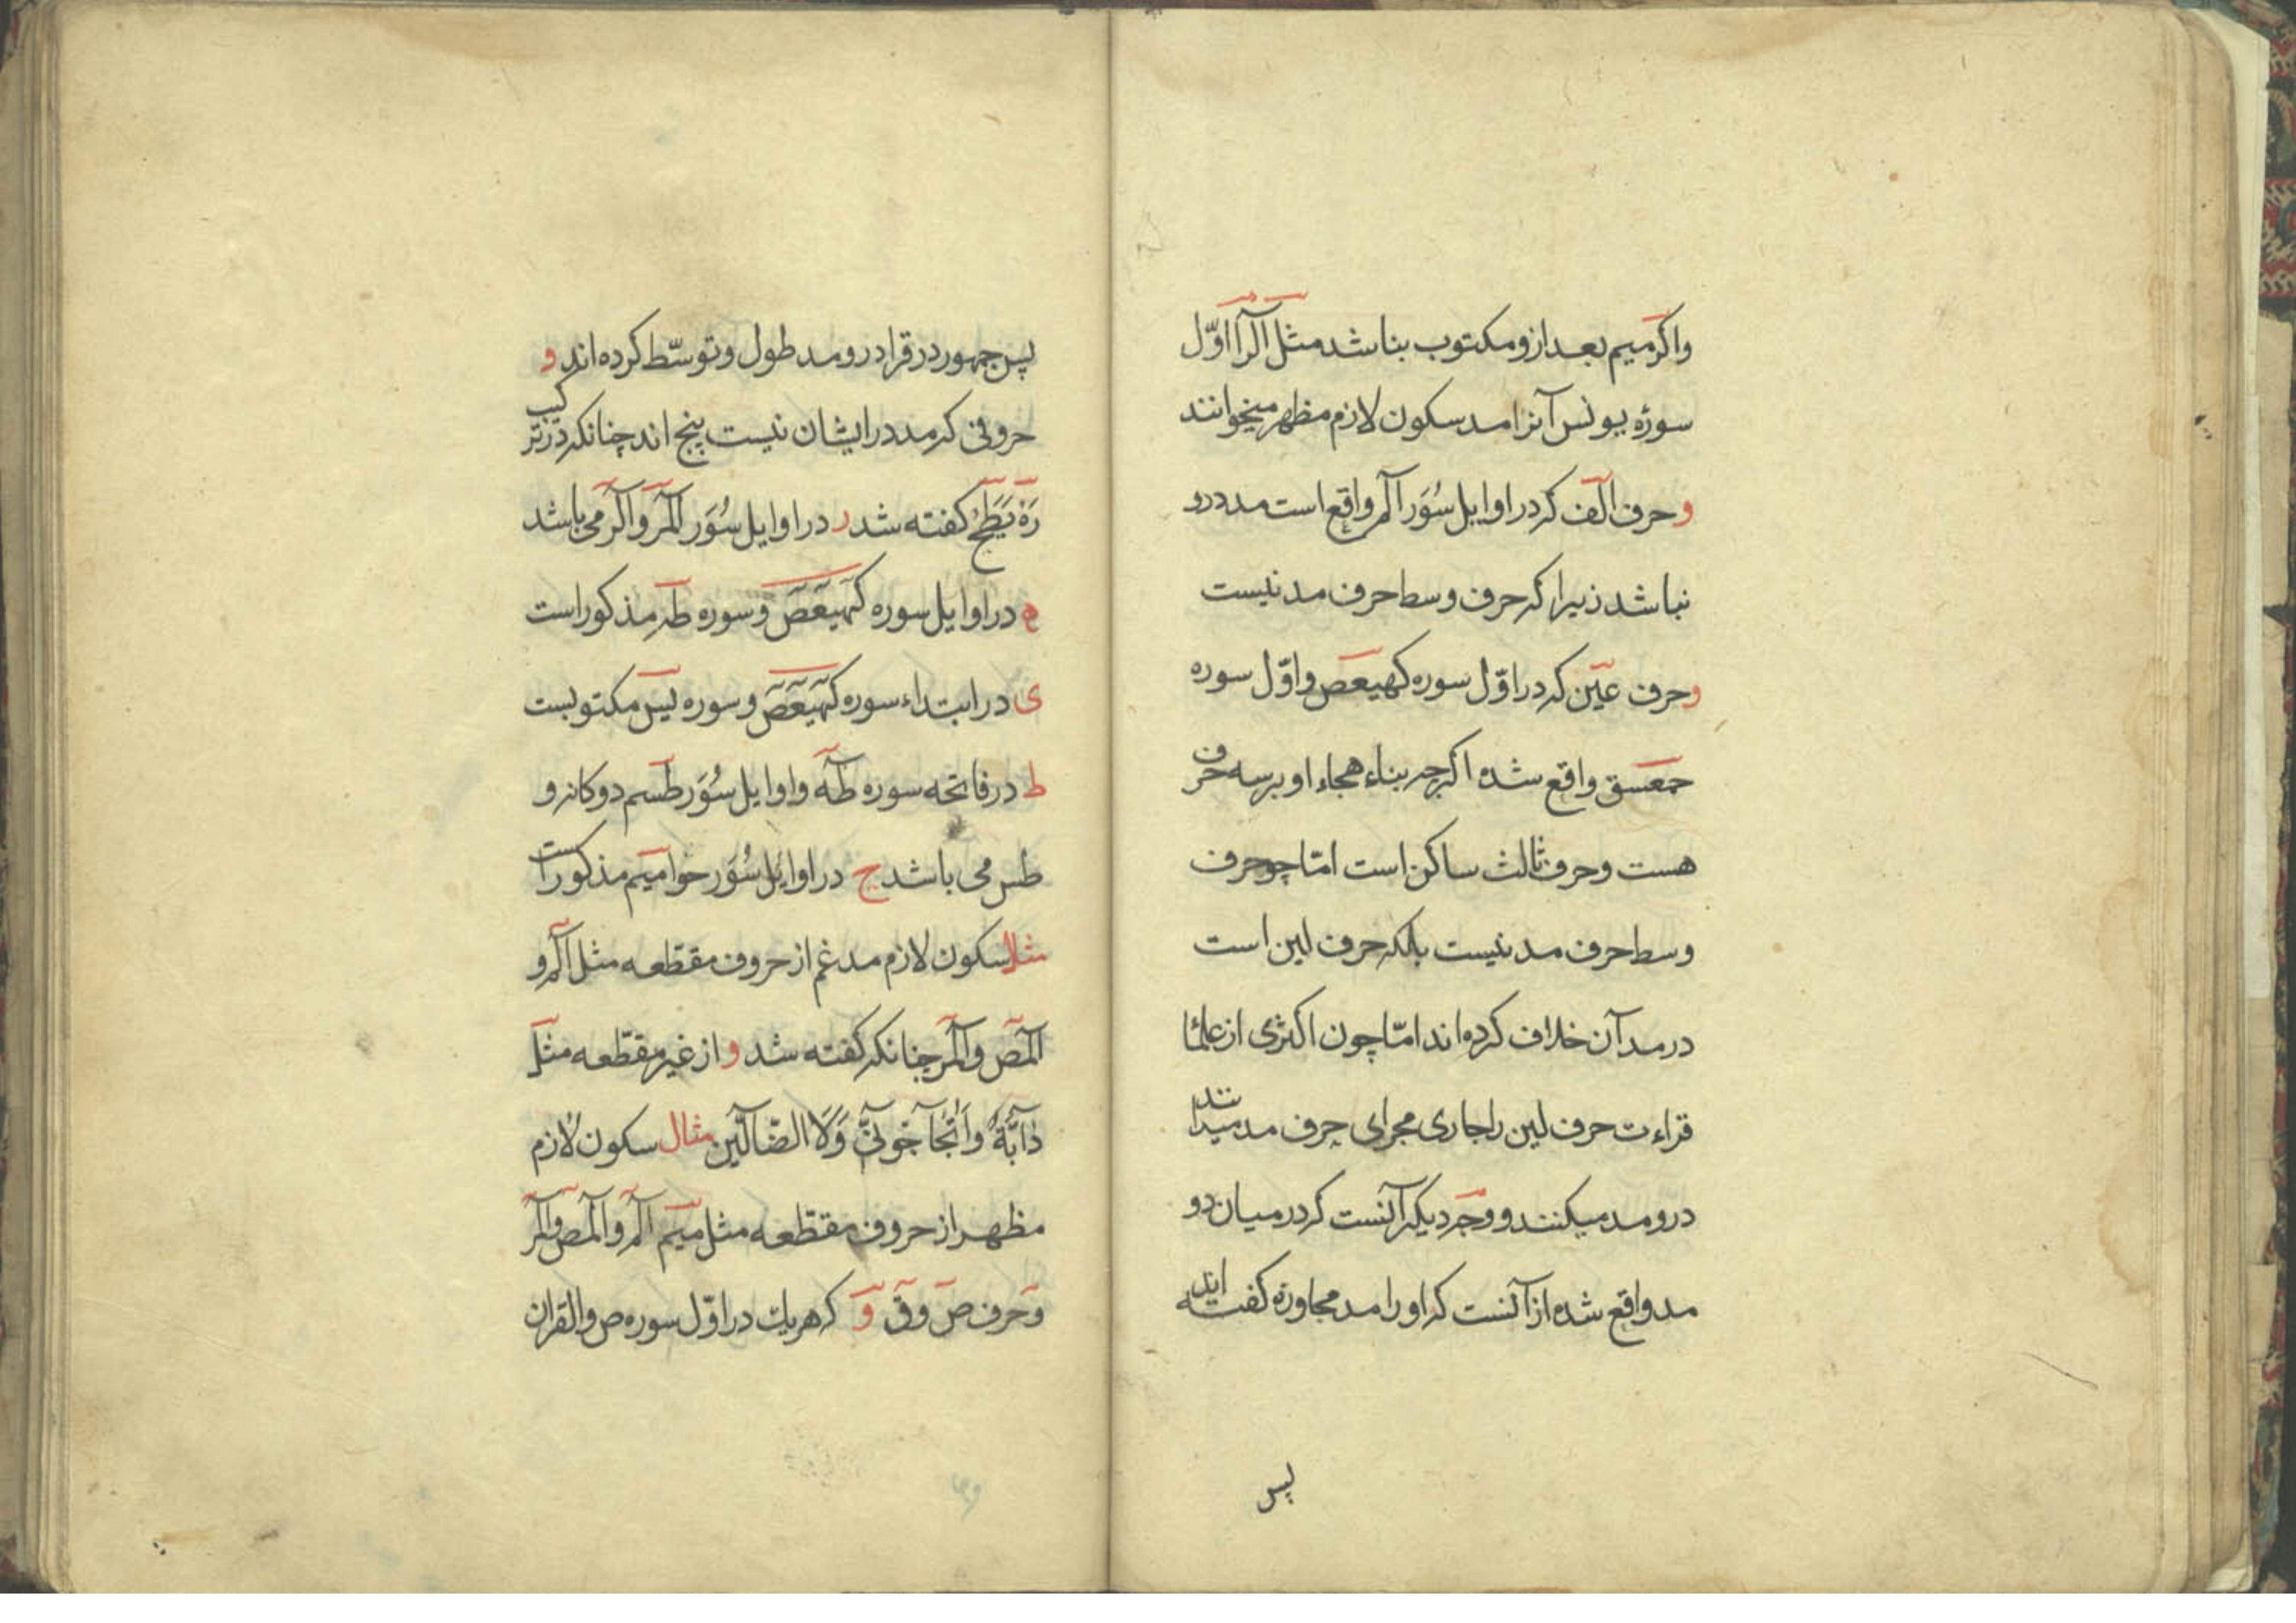 واکر میم بعد ازو مکتوب بناشد مثل آلرا اوّل
سورۀ یونس آنرا مد سکون لازم مظهر میخوانند
و حرف الف که در اوایل سُوَر آلم واقع است مد درو
نباشد زیرا که حرف وسط حرف مد نیست
وحرف عین که در اوّل سوره کهیعص و اوّل سوره
حمعسق واقع شده اکرچه بناء هجاء او بر سه حرف
هست و حرف ثالث ساکن است امّا چو حرف
وسط حرف مد نیست بلکه حرف لین است
در مد آن خلاف کرده اند امّا چون اکثری از علما
قراءت حرف لین را جاری مجرای حرف مد میدانند
درو مد میکنند و وجه دیکر آنست که در میان دو
مد واقع شده از آنست که او را مد مجاوزه کفته اند
پس
پس جمهور در قرا درو مد طول و توسّط کرده اند و
حروفی که مد در ایشان نیست پنج اند چنانکه در ترکیب
رَهْ یَطَحْ کفته شد ر در اوایل سُوَر آلمر و آلر می باشد
ه در اوایل سوره کهیعص و سوره طه مذکور است
ی در ابتداء سوره کهیعص و سوره یس مکتوبست
ط در فاتحه سوره طه و اوایل سُوَر طسم دوکانه و
طس می باشد ح در اوایل سُوَر حوامیم مذکور است
مثال سکون لازم مدغم از حروف مقطّعه مثل آلم و
آلمص و آلمر چنانکه کفته شد و از غیر مقطّعه مثل
دَابَّةٌ وَ اَتُحَاجُّونِّی وَلَا الضَّالّین مثال سکون لازم
مظهر از حروف مقطّعه مثل میم آلم و آلمص و آلمر
و حرف ص و ق و که هریك در اوّل سوره ص والقران